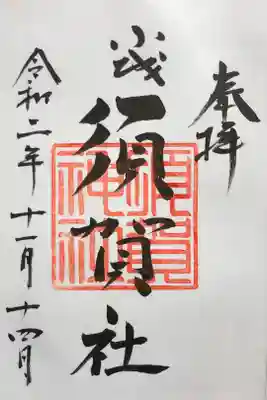 奉拝
武 須賀社
須賀神社
令和二年 十一月 十四日